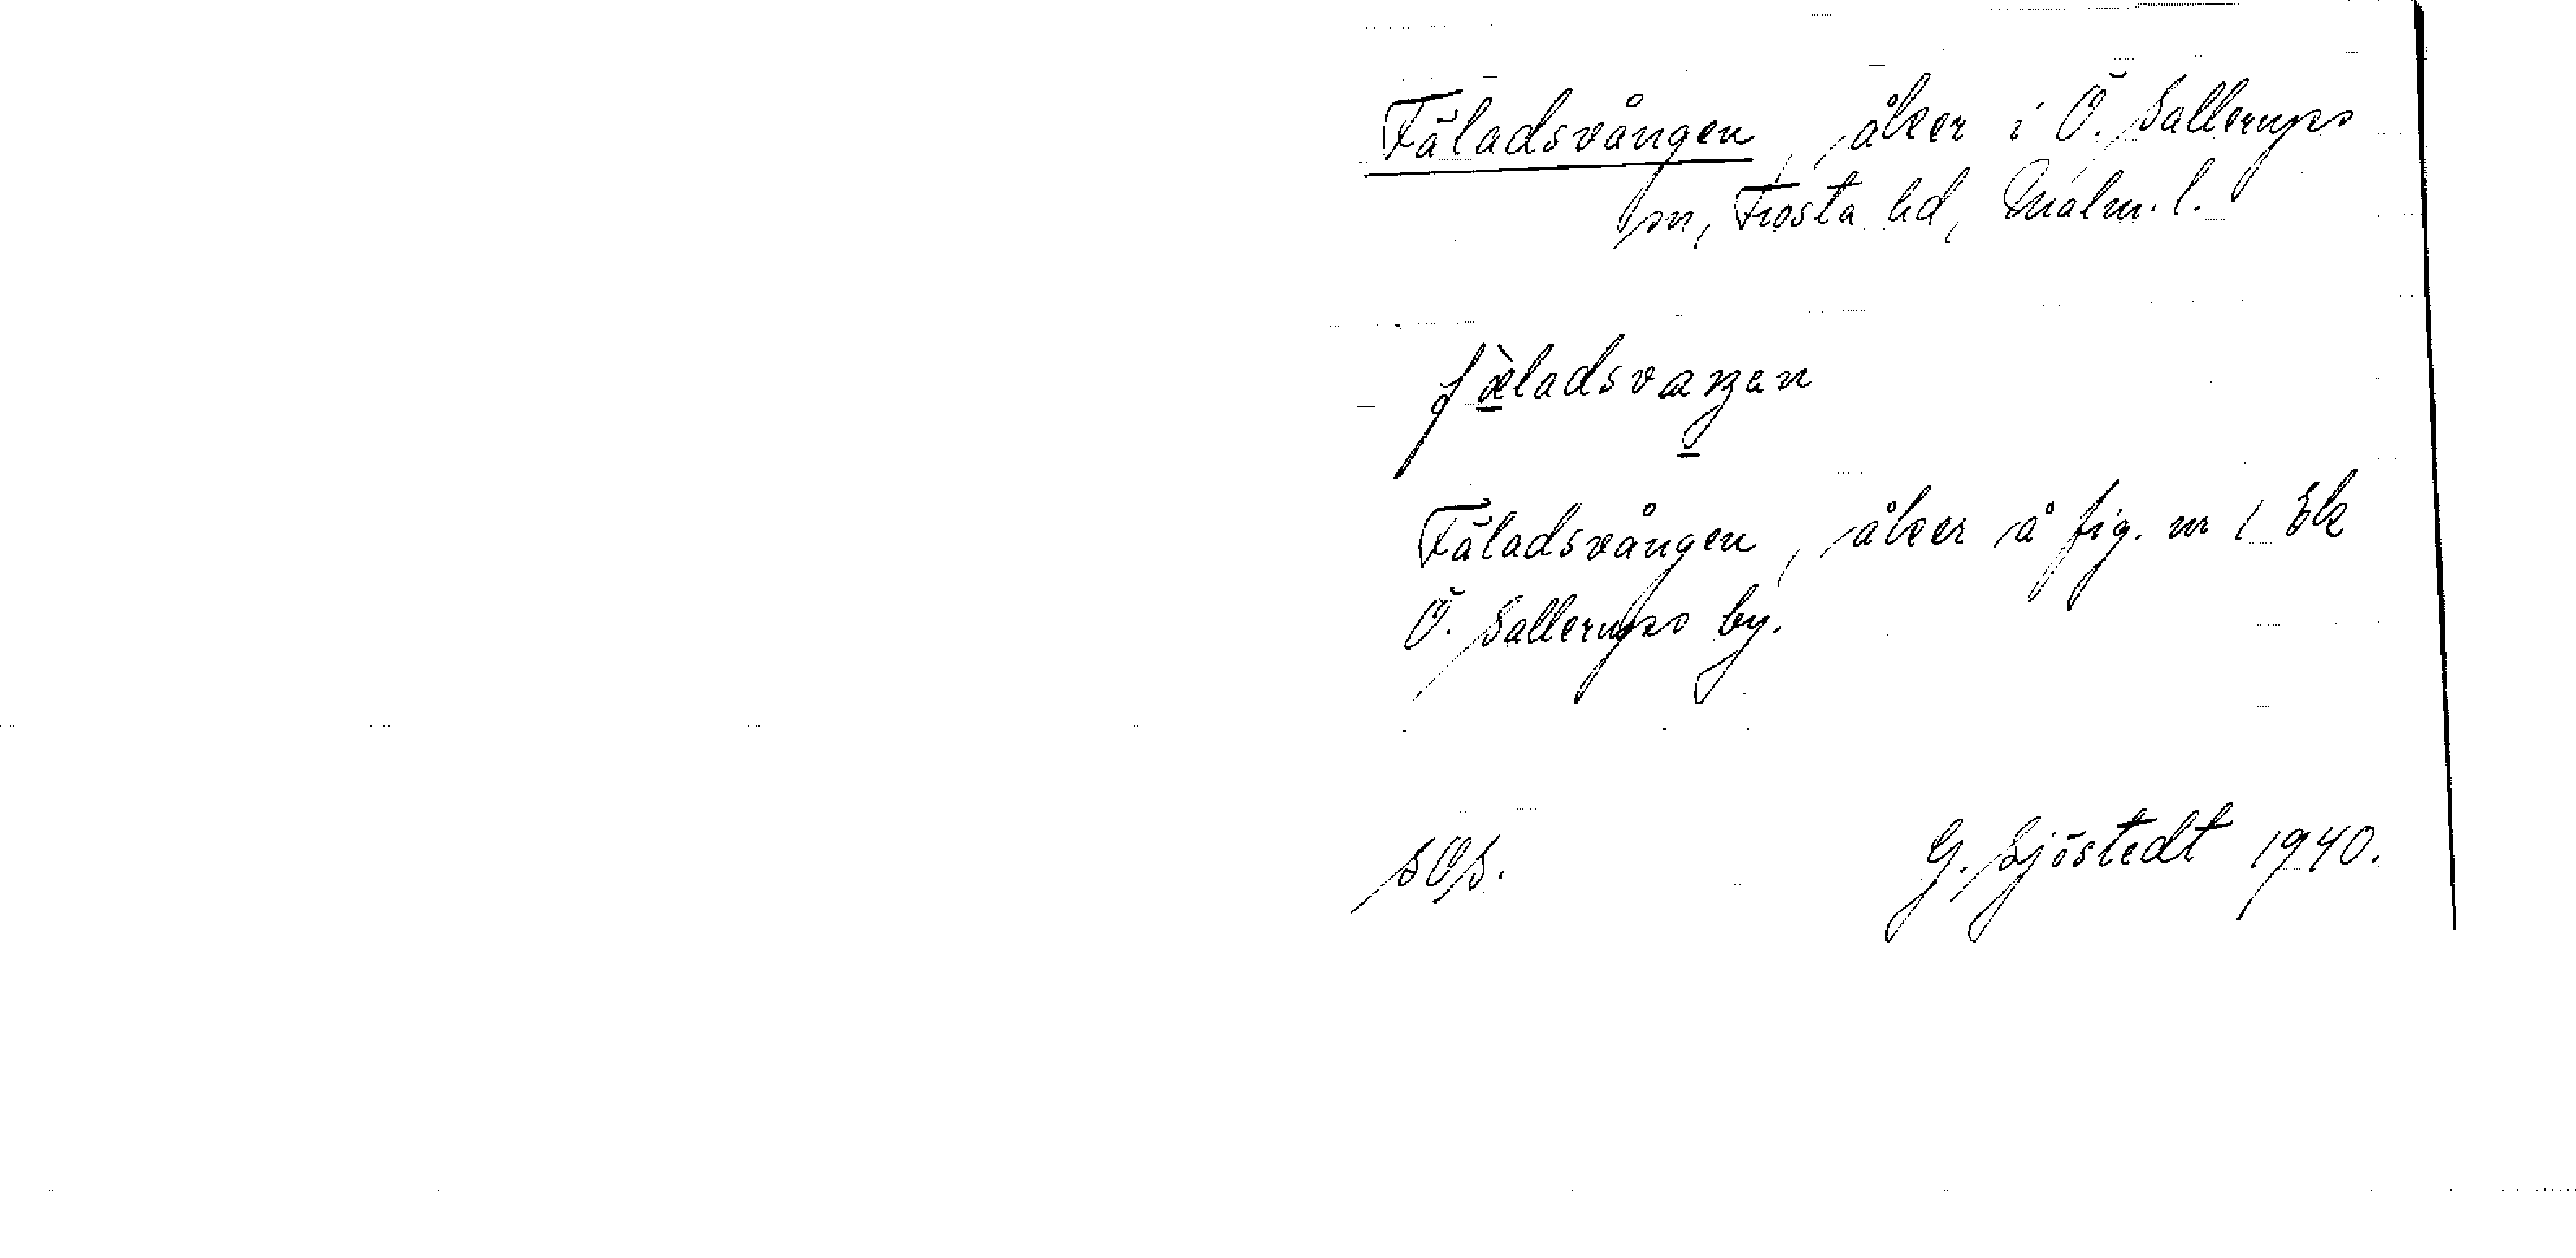 Fäladsvången, åker i Ö. Sallerups
sn, Frosta hd, Malm. l.
fæ̀ladsvaŋen
Fäladsvången, åker å fig. nr 1 Ek
Ö. Sallerups by.
sOs. G. Sjöstedt 1940.